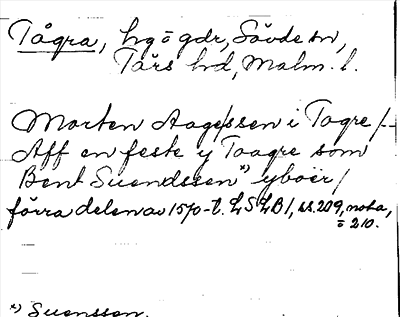 Tågra, hg ō gdr, Sövde sn,
Färs hd, Malm. l.
Morten Aagessen i Togre /--
Aff en feste y Taagre som
Bent Suendssen*) yboër /
förra delen av 1570-t. LSLB 1, ss. 209, nota,
ō 210.
*) Suensson.